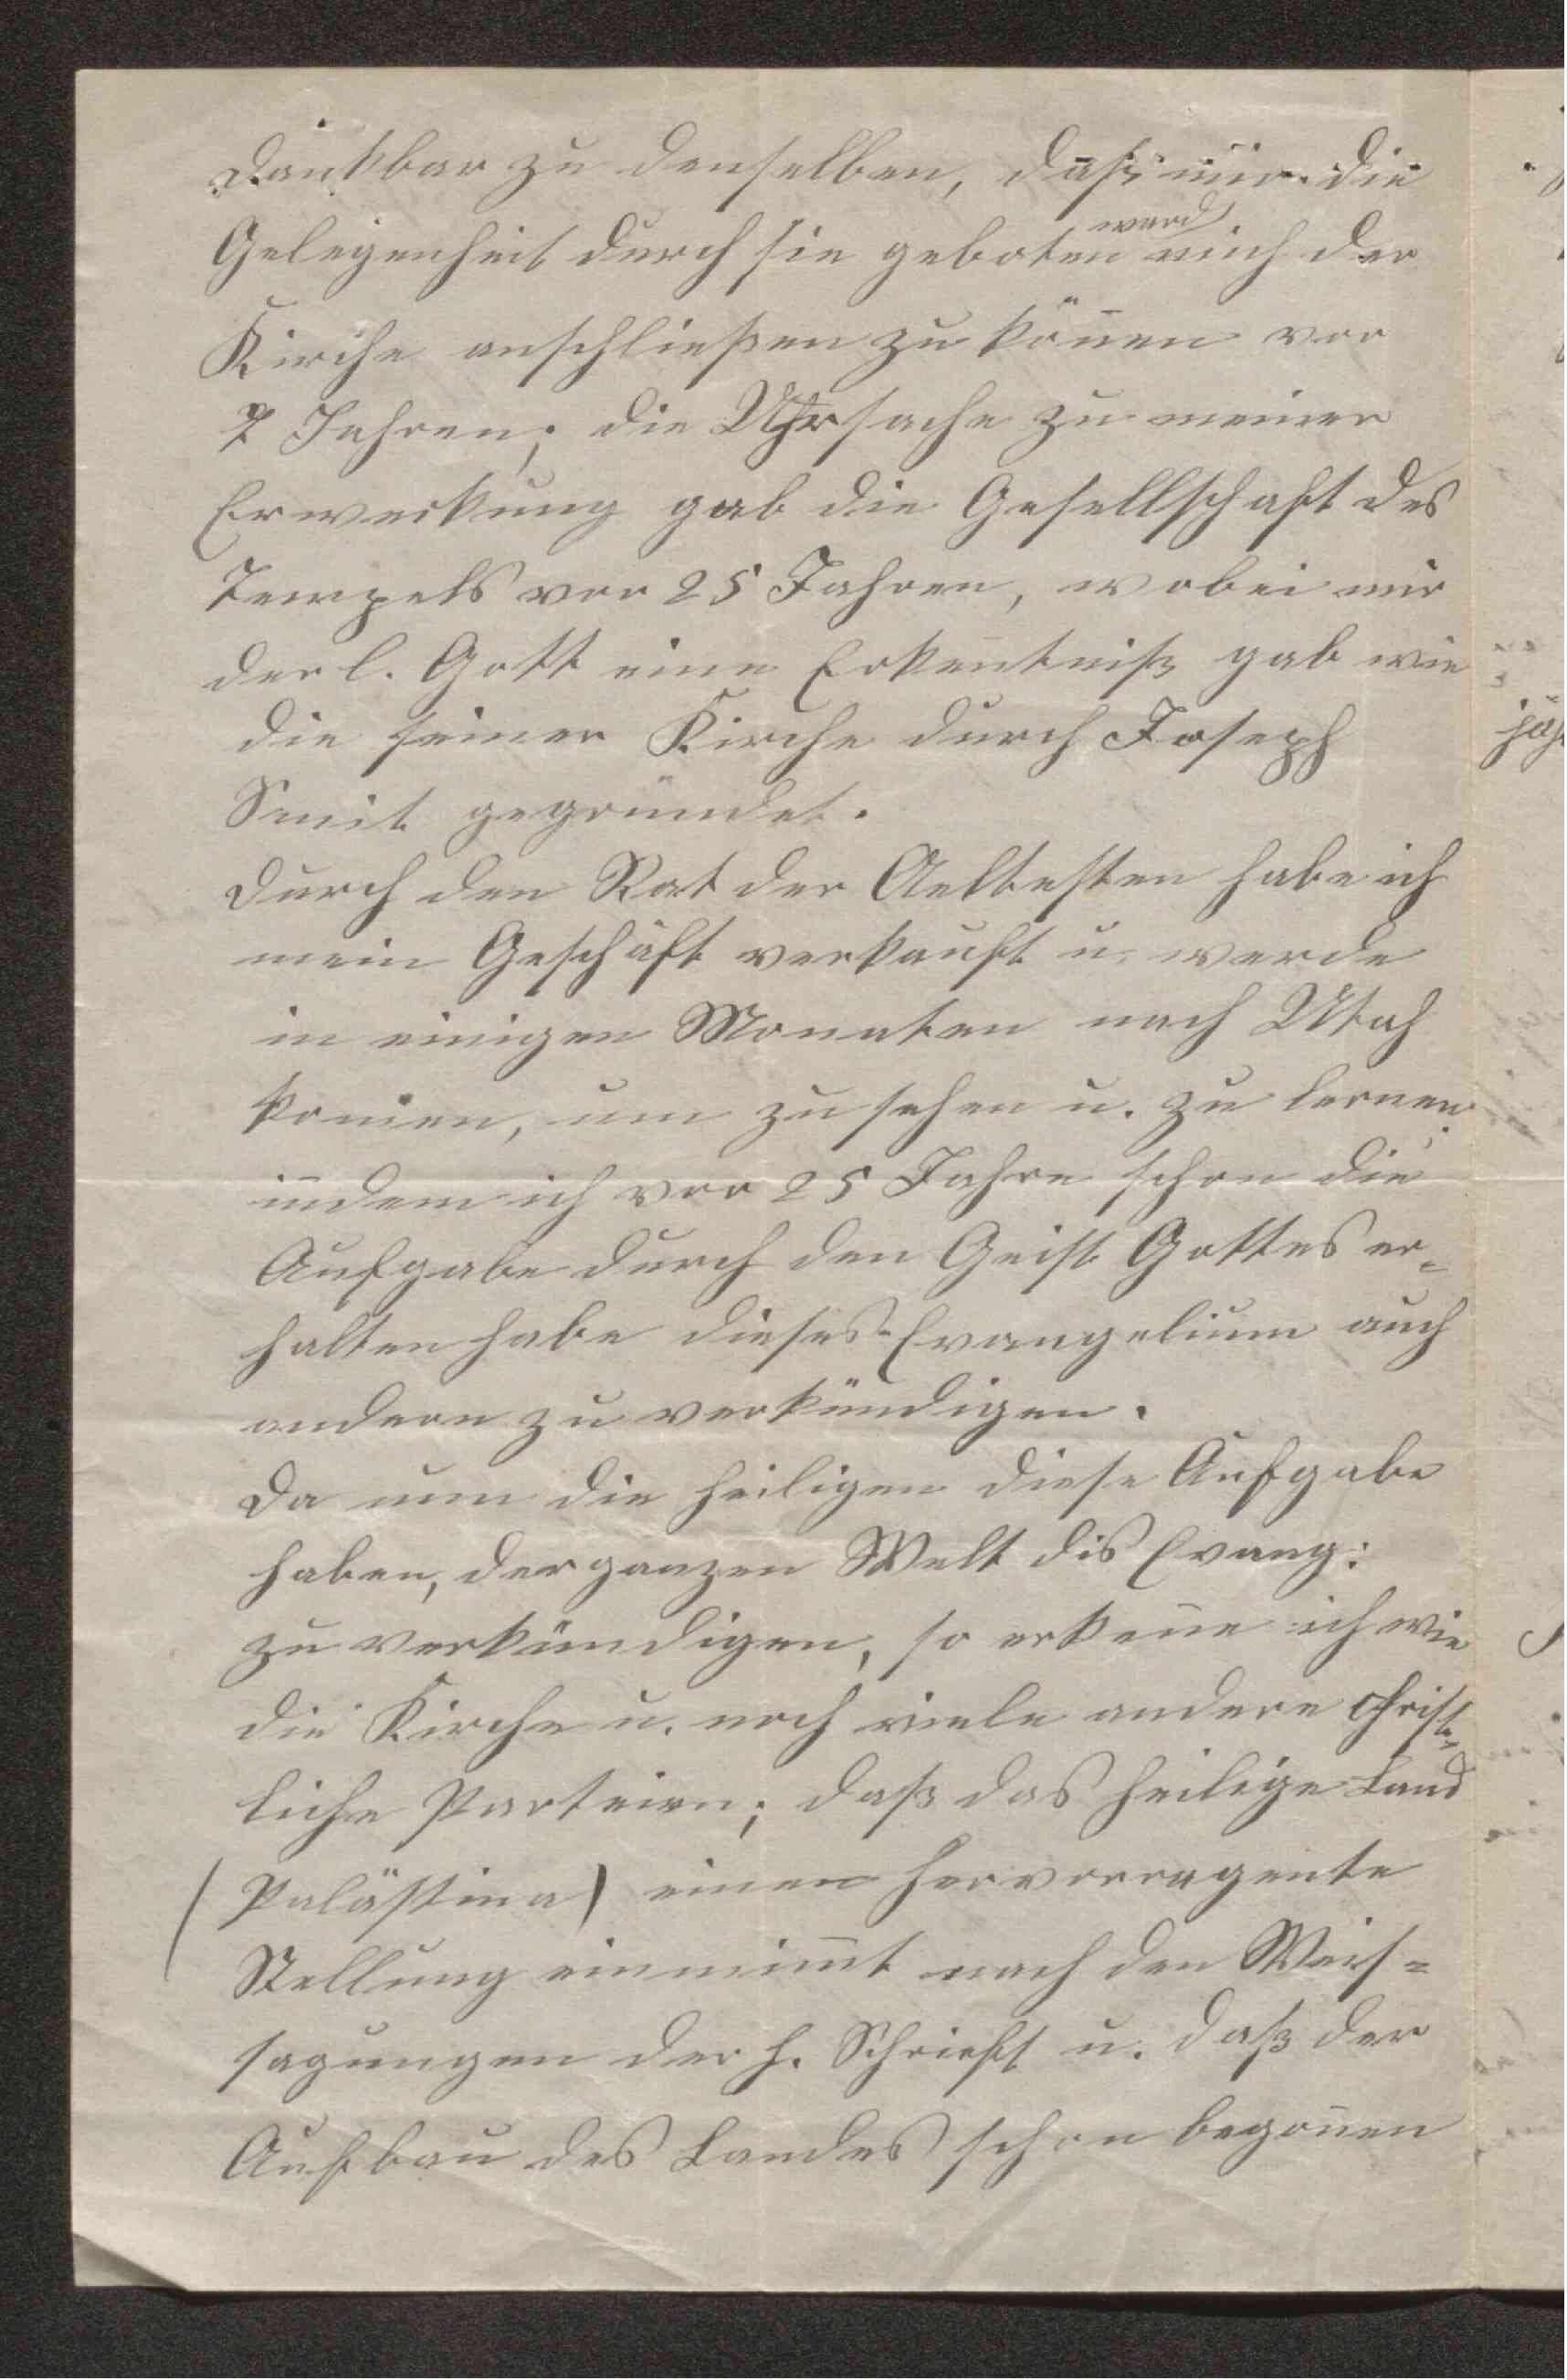 Dankbar zu denselben, daß mir die
Gelegenheit durch sie geboten ward mich der
Kirche anschließen zu kön̄en vor
2 Jahren; die Uhrsache zu meiner
Erweckung gab die Gesellschaft des
Tempels vor 25 Jahren, wobei mir
der l. Gott eine Erken̄tniß gab wie
die seiner Kirche durch Joseph
Smit gegründet.
Durch den Rat der Aeltesten habe ich
mein Geschäft verkauft u. werde
in einigen Monaten nach Utah
kom̄en, um zu sehen u. zu lernen
indem ich vor 25 Jahre schon die
Aufgabe durch den Geist Gottes er=
halten habe dieses Evangelium auch
andern zu verkündigen.
Da nun die Heiligen diese Aufgabe
haben, der ganzen Welt dis Evang:
zu verkündigen, so erken̄e ich wie
die Kirche u. noch viele andere christ=
liche Parteien; daß das heilige Land
(Palästina) einen hervorragente
Stellung einnim̄t nach den Weis=
sagungen der h. Schrieft u. daß der
Aufbau des Landes schon begon̄en